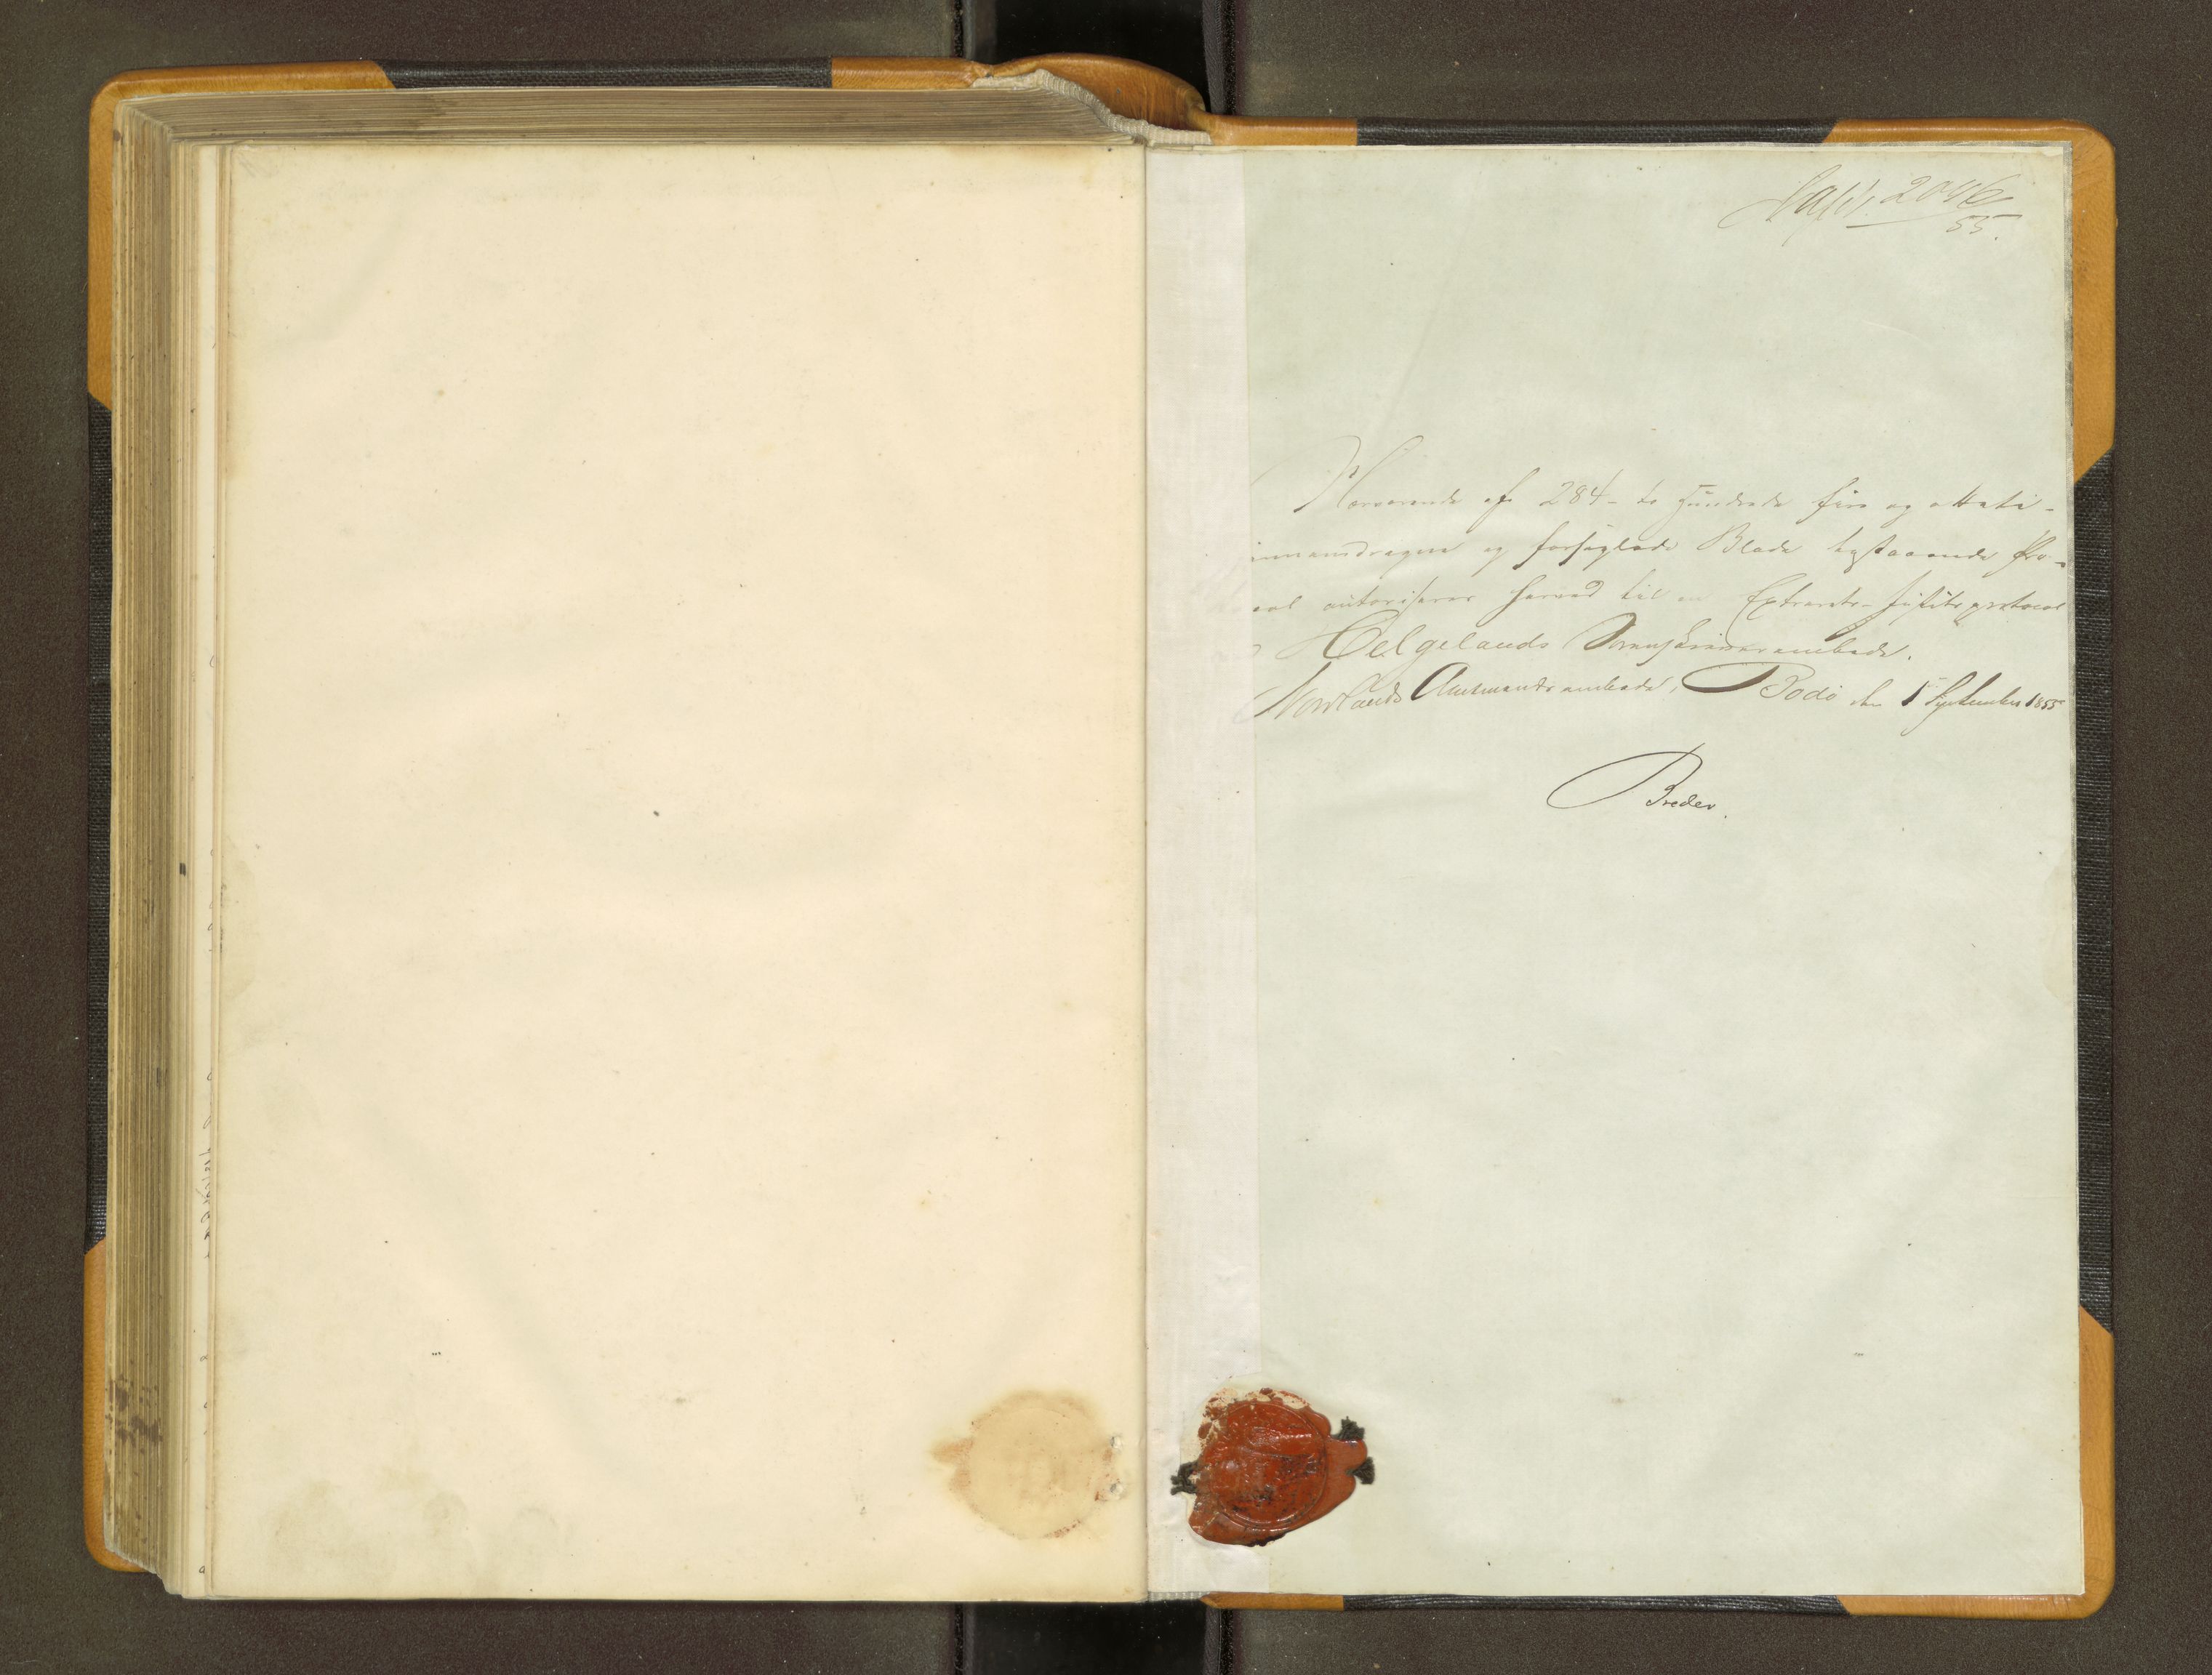 2046
55.
Nærværende af 284 - to Hundrede fire og otteti -
innemdragne og forseglede Blade bestaaende Pro-
col autoriseres herved til en Extrarets-Justitsprotocol
Helgelands Sorenskriverembede.
Nordlands Amtmandsembede, Bodø den 1 September 1855
Breder.